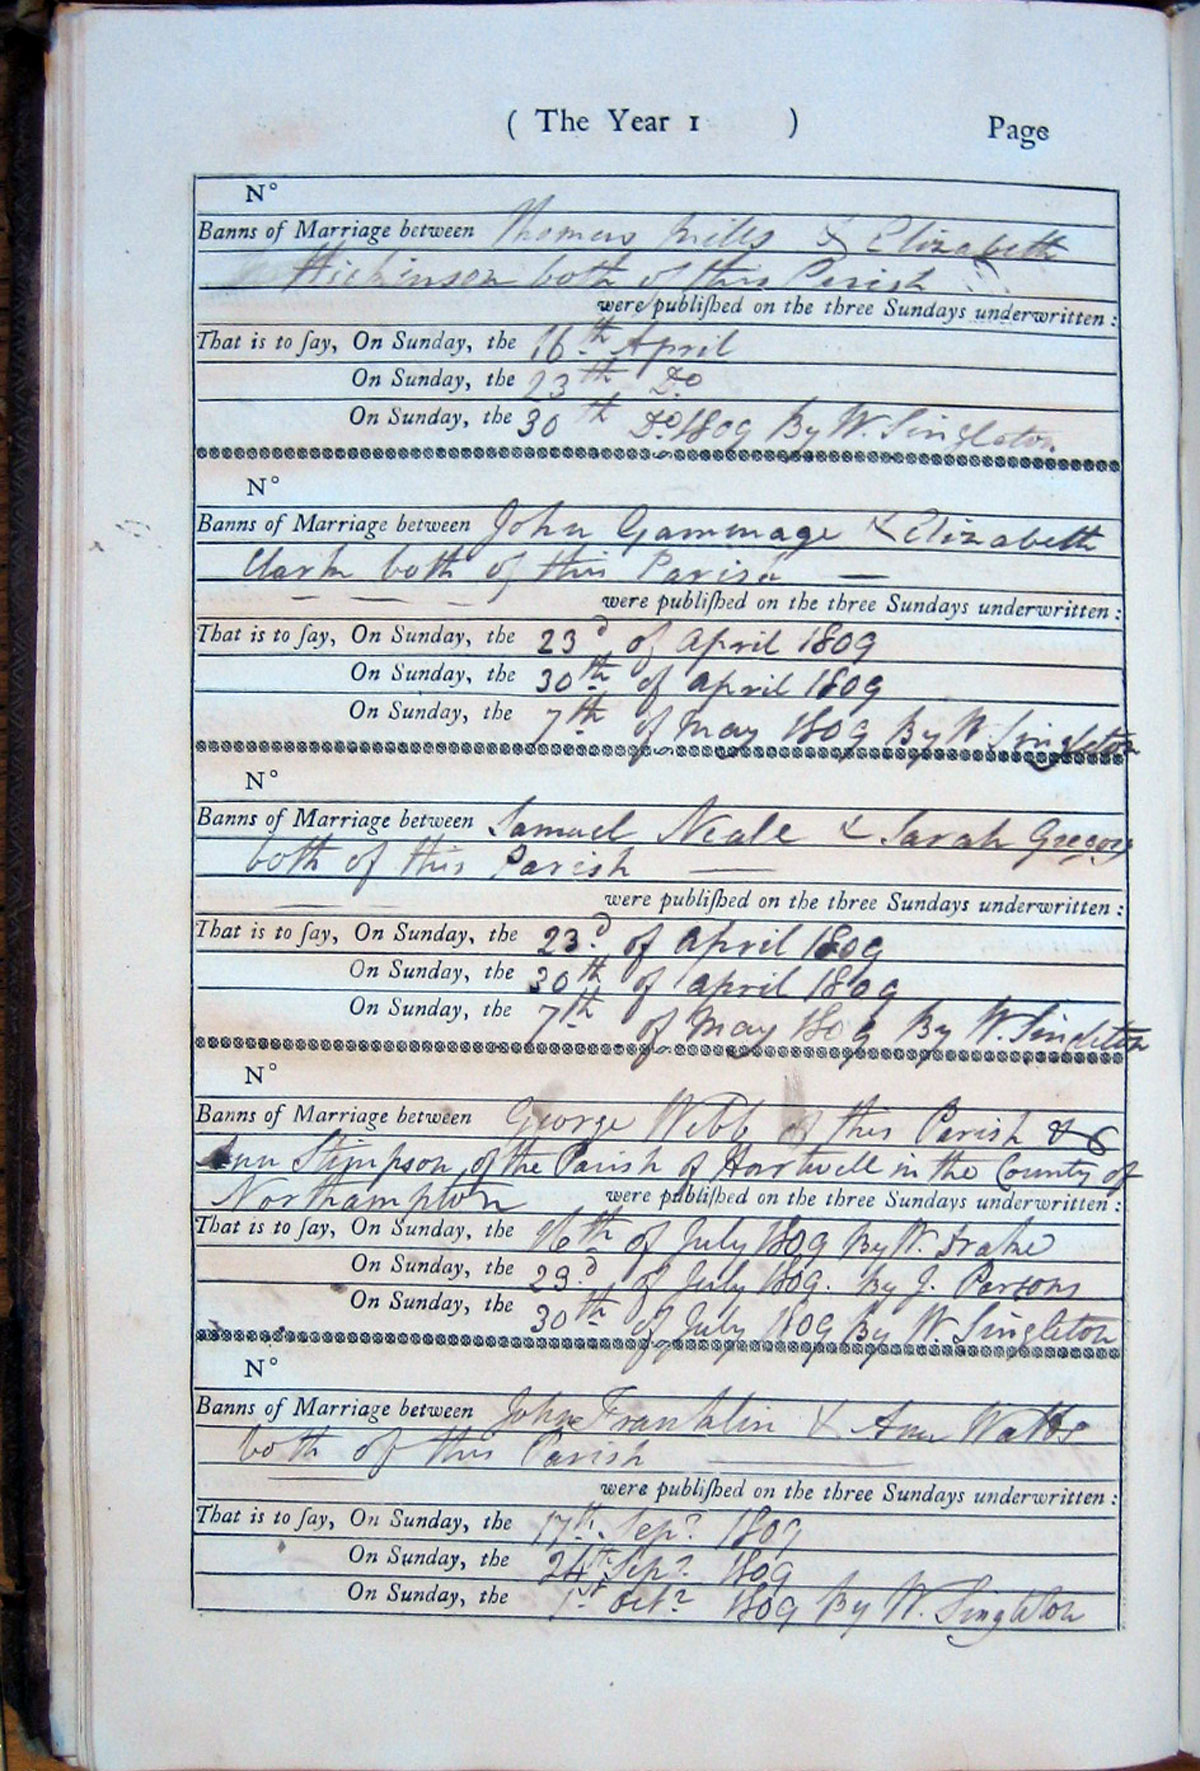 ( The Year 1 ) Page
N°
Banns of Marriage between Thomas Mills & Elizabeth
Hickinson both of this Parish
were publiſhed on the three Sundays underwritten :
That is to ſay, On Sunday, the 16th April
On Sunday, the 23th Do
On Sunday, the 30th Do 1809 By W. Singleton
N°
Banns of Marriage between John Gammage & Elizabeth
Clark both of this Parish —
were publiſhed on the three Sundays underwritten :
That is to ſay, On Sunday, the 23d of April 1809
On Sunday, the 30th of April 1809
On Sunday, the 7th of May 1809 By W. Singleton
N°
Banns of Marriage between Samuel Neale & Sarah Gregory
both of this Parish —
were publiſhed on the three Sundays underwritten :
That is to ſay, On Sunday, the 23d of April 1809
On Sunday, the 30th of April 1809
On Sunday, the 7th of May 1809 By W. Sindeton
N°
Banns of Marriage between George Webb of this Parish &
Ann Stimpson of the Parish of Hartwell in the County of
Northampton were publiſhed on the three Sundays underwritten :
That is to ſay, On Sunday, the 16th of July 1809 By W. Drake
On Sunday, the 23d of July 1809. By J. Parsons
On Sunday, the 30th of July 1809 By W. Singleton
N°
Banns of Marriage between John Franklin & Ann Watts
both of this Parish —
were publiſhed on the three Sundays underwritten :
That is to ſay, On Sunday, the 17th. Sepr 1809
On Sunday, the 24th Sepr 1809
On Sunday, the 1st Octr 1809 By W. Singleton